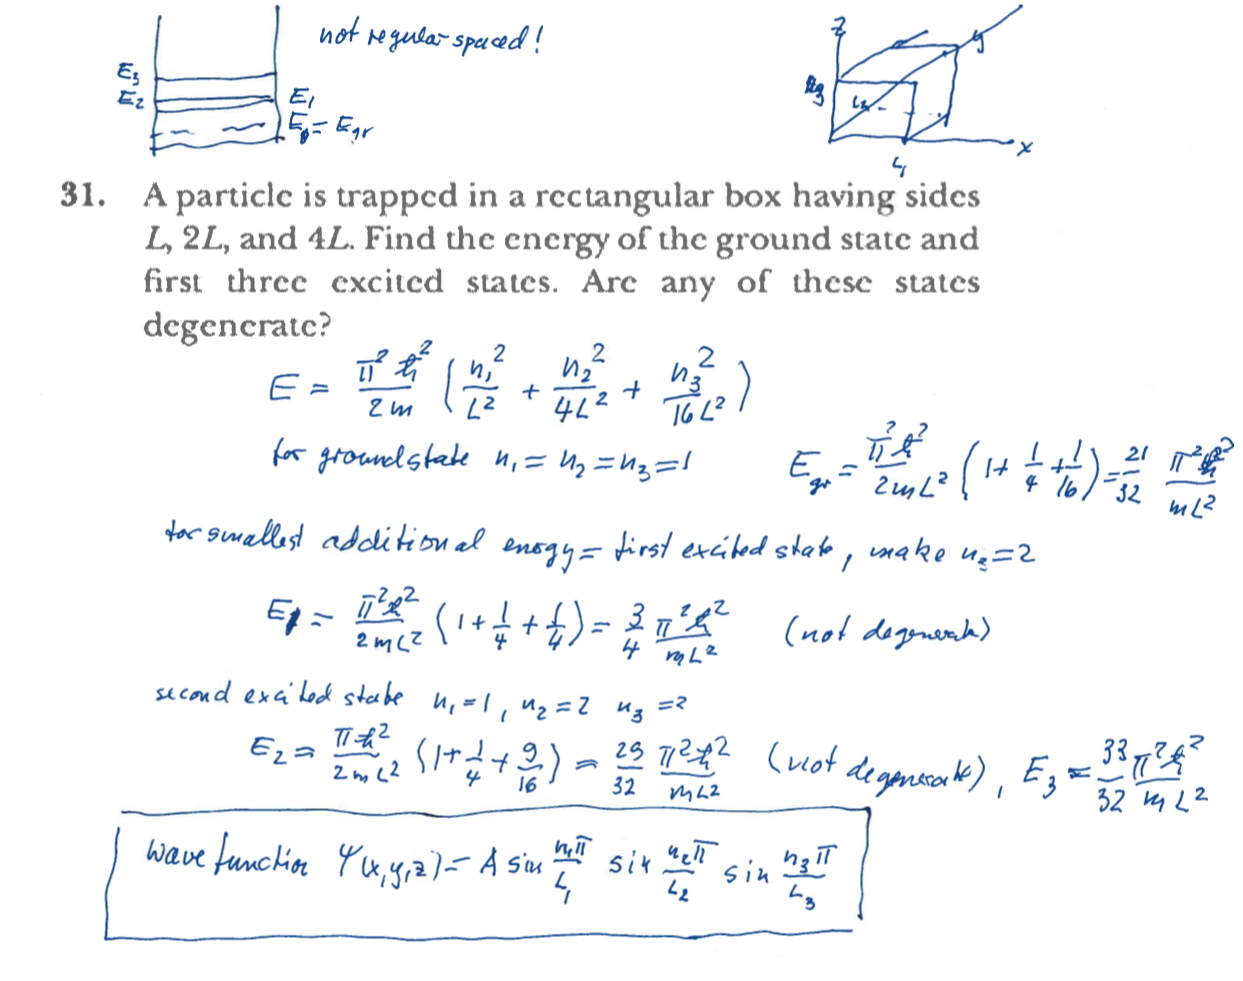 not regular spaced!
E₃
E₂
E₁
E₀ = E_gr
z
y
x
L₃
L₂
L₁
31. A particle is trapped in a rectangular box having sides
L, 2L, and 4L. Find the energy of the ground state and
first three excited states. Are any of these states
degenerate?
E = π²ħ²/2m (n₁²/L² + n₂²/4L² + n₃²/16L²)
for ground state n₁ = n₂ = n₃ = 1 E_gr = π²ħ²/2mL² (1 + 1/4 + 1/16) = 21/32 π²ħ²/mL²
for smallest additional enegy = first excited state, make n₃ = 2
E₁ = π²ħ²/2mL² (1 + 1/4 + 1/4) = 3/4 π²ħ²/mL² (not degenerate)
second excited state n₁ = 1, n₂ = 2 n₃ = 2
E₂ = πħ²/2mL² (1 + 1/4 + 9/16) = 29/32 π²ħ²/mL² (not degenerate), E₃ = 33/32 π²ħ²/mL²
wave function Ψ(x,y,z) = A sin n₁π/L₁ sin n₂π/L₂ sin n₃π/L₃